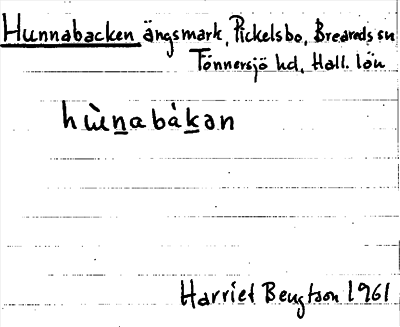 Hunnabacken ängsmark, Pickelsbo, Breareds sn
Tönnersjö hd, Hall. län
hùnabàkən
Harriet Bengtson 1961